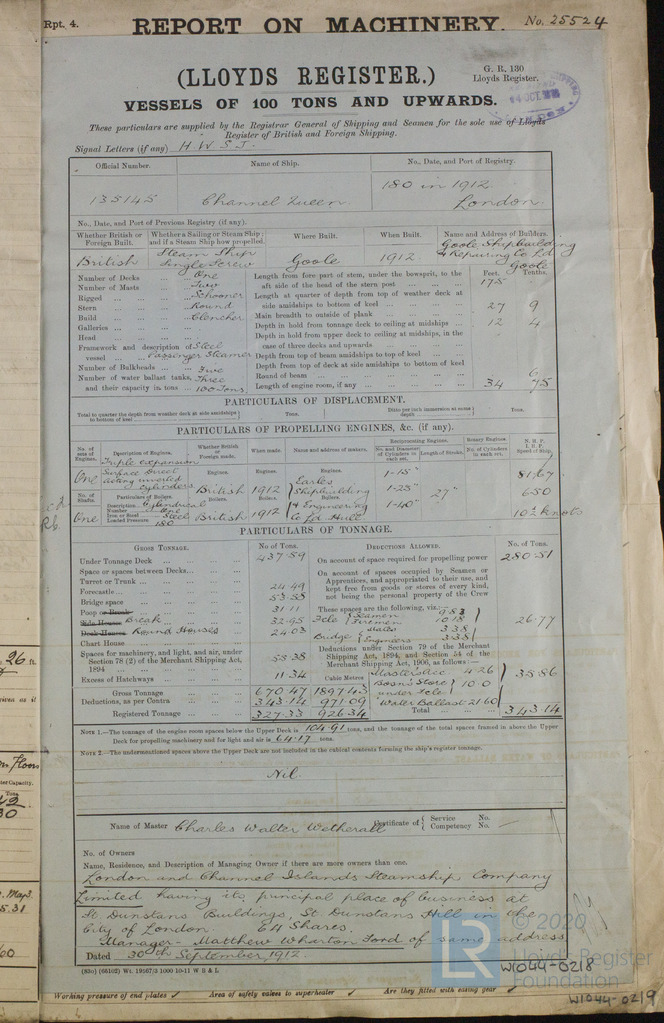 Rpt. 4.
REPORT ON MACHINERY.
No. 25524
(LLOYDS REGISTER.)
G. R. 130
Lloyds Register.
VESSELS OF 100 TONS AND UPWARDS.
These particulars are supplied by the Registrar General of Shipping and Seamen for the sole use of Lloyds
Register of British and Foreign Shipping.
Signal Letters (if any) H W S J.
Official Number. Name of Ship. No., Date, and Port of Registry.
135145 Channel Queen 180 in 1912
London.
No., Date, and Port of Previous Registry (if any).
Whether British or Foreign Built. Whether a Sailing or Steam Ship; and if a Steam Ship how propelled. Where Built. When Built. Name and Address of Builders.
British Steam Ship Single Screw Goole 1912. Goole Shipbuilding & Repairing Co Ld Goole
Number of Decks One
Number of Masts Two
Rigged Schooner
Stern Round
Build Clencher
Galleries
Head
Framework and description of vessel Steel Passenger Steamer
Number of Bulkheads Five
Number of water ballast tanks, Three
and their capacity in tons 100 Tons.
Feet. Tenths.
Length from fore part of stem, under the bowsprit, to the
aft side of the head of the stern post 175
Length at quarter of depth from top of weather deck at
side amidships to bottom of keel
Main breadth to outside of plank 27 9
Depth in hold from tonnage deck to ceiling at midships 12 4
Depth in hold from upper deck to ceiling at midships, in the
case of three decks and upwards
Depth from top of beam amidships to top of keel
Depth from top of deck at side amidships to bottom of keel
Round of beam 6
Length of engine room, if any 34 75
PARTICULARS OF DISPLACEMENT.
Total to quarter the depth from weather deck at side amidships to bottom of keel Tons. Ditto per inch immersion at same depth Tons.
PARTICULARS OF PROPELLING ENGINES, &c. (if any).
No. of sets of Engines. Description of Engines. Whether British or Foreign made. When made. Name and address of makers. Reciprocating Engines. Rotary Engines. N.H.P. I.H.P. Speed of Ship.
No. and Diameter of Cylinders in each set. Length of Stroke. No. of Cylinders in each set.
One Triple expansion Surface Direct acting inverted cylinders
Engines. British Engines. 1912 Engines. Earles Shipbuilding & Engineering Co Ld Hull
1-15" 1-25" 1-40" 27" 81.67 650 10½ knots
No. of Shafts. Particulars of Boilers. Boilers. Boilers. Boilers.
One Description Cylindrical
Number One
Iron or Steel Steel
Loaded Pressure 180
British 1912
PARTICULARS OF TONNAGE.
GROSS TONNAGE. No. of Tons.
Under Tonnage Deck 437.59
Space or spaces between Decks
Turret or Trunk
Forecastle 24.49
Bridge space 53.58
Poop or Break 31.11
Side Houses Break 32.95
Deck Houses Round Houses 24.03
Chart House
Spaces for machinery, and light, and air, under
Section 78 (2) of the Merchant Shipping Act,
1894 55.38
Excess of Hatchways 11.34
Cubic Metres
Gross Tonnage 670.47 1897.43
Deductions, as per Contra 343.14 971.09
Registered Tonnage 327.33 926.34
DEDUCTIONS ALLOWED. No. of Tons.
On account of space required for propelling power 280.51
On account of spaces occupied by Seamen or
Apprentices, and appropriated to their use, and
kept free from goods or stores of every kind,
not being the personal property of the Crew
These spaces are the following, viz.:—
Fcle Seamen 9.83
Firemen 10.18
Mates 3.38
Bridge Engineers 3.38
26.77
Deductions under Section 79 of the Merchant
Shipping Act, 1894, and Section 54 of the
Merchant Shipping Act, 1906, as follows:—
Master's Acc 4.26
Bosn's Store under Fcle 10.0
Water Ballast 21.60
35.86
Total 343.14
NOTE 1.—The tonnage of the engine room spaces below the Upper Deck is 104.91 tons, and the tonnage of the total spaces framed in above the Upper
Deck for propelling machinery and for light and air is 64.17 tons.
NOTE 2.—The undermentioned spaces above the Upper Deck are not included in the cubical contents forming the ship's register tonnage.
Nil.
Name of Master Charles Walter Wetherall Certificate of Service No.
Competency No.
No. of Owners
Name, Residence, and Description of Managing Owner if there are more owners than one.
London and Channel Islands Steamship Company
Limited having its principal place of business at
St Dunstans Buildings, St Dunstans Hill in the
City of London. 64 Shares.
Manager - Matthew Wharton Ford of same address
Dated 30th September, 1912.
(83o) (66102) Wt. 19567/3 1000 10-11 W B & L
© 2020
LR Lloyd's Register
Foundation
W1044-0218
W1044-0219
Working pressure of end plates Area of safety valves to superheater Are they fitted with easing gear